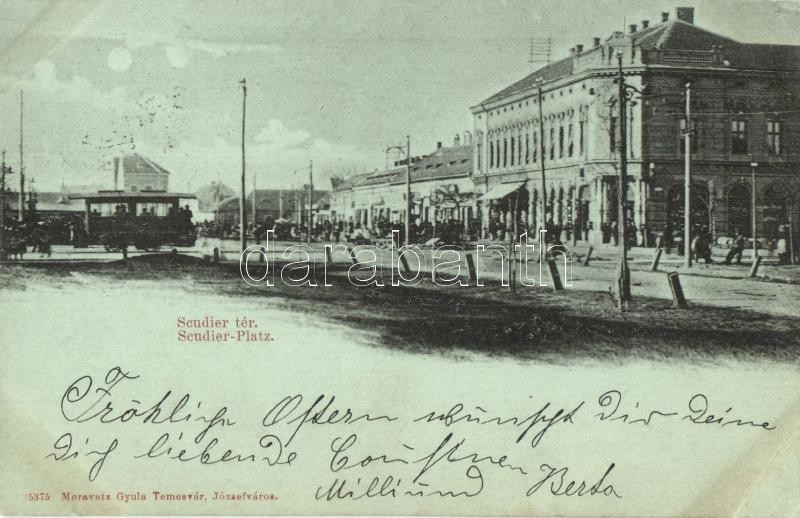 darabanth
Scudier tér.
Scudier-Platz.
Fröhliche Ostern wünscht Dir Deine
Dich liebende Cousinen
und Berta
15375 Moravetz Gyula Temesvár, Józsefváros.